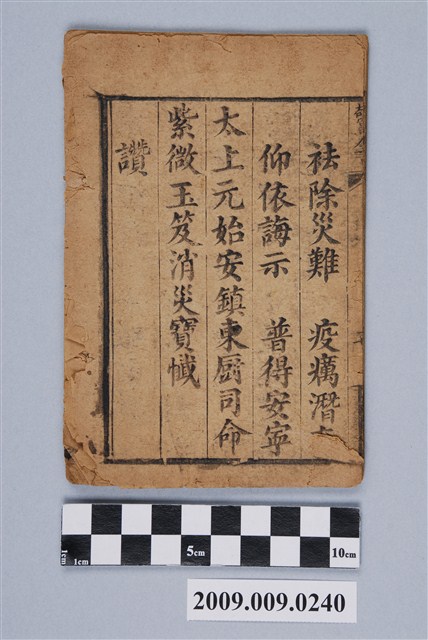 祛除災難　疫癘潛
仰依誨示　普得安寧
太上元始安鎮東厨司命
紫微玉笈消災寶懺
讚
1cm
1cm
5cm
10cm
2009.009.0240